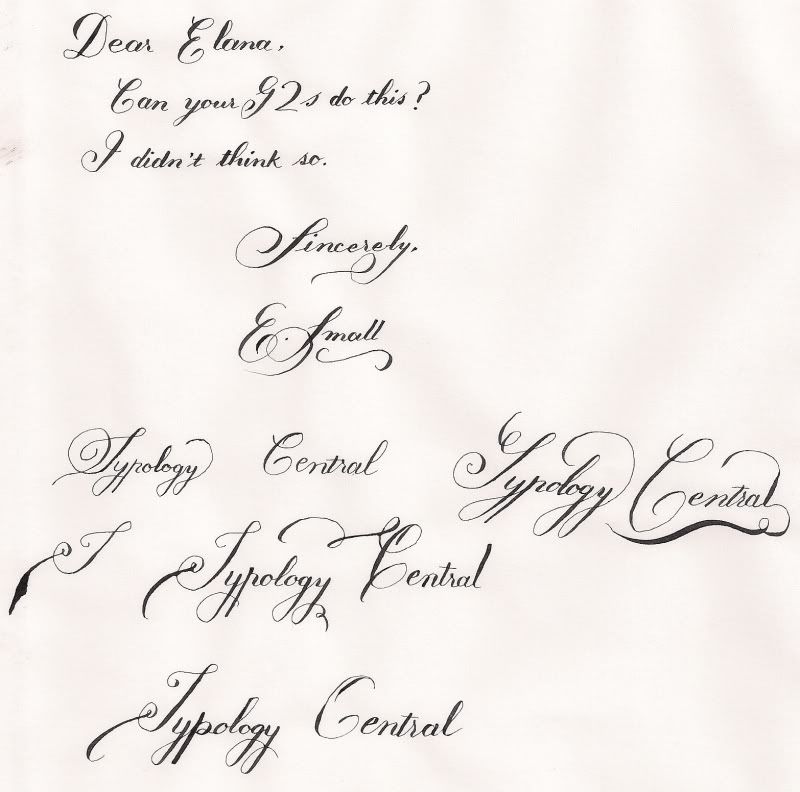 Dear Elana,
Can your G2s do this?
I didn't think so.
Sincerely,
E. Small
Typology Central
Typology Central
T
Typology Central
Typology Central